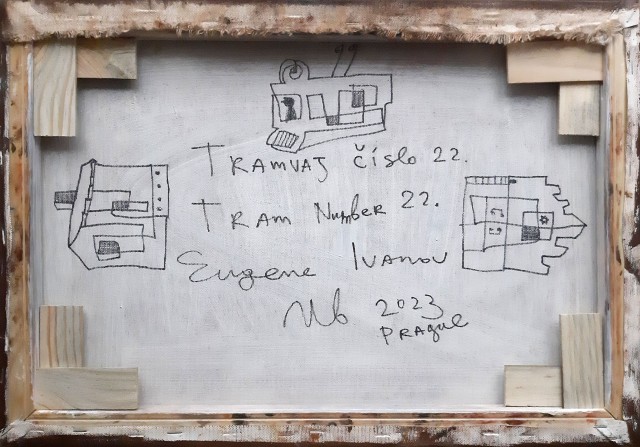 Tramvaj číslo 22.
Tram Number 22.
Eugene Ivanov
2023
Prague